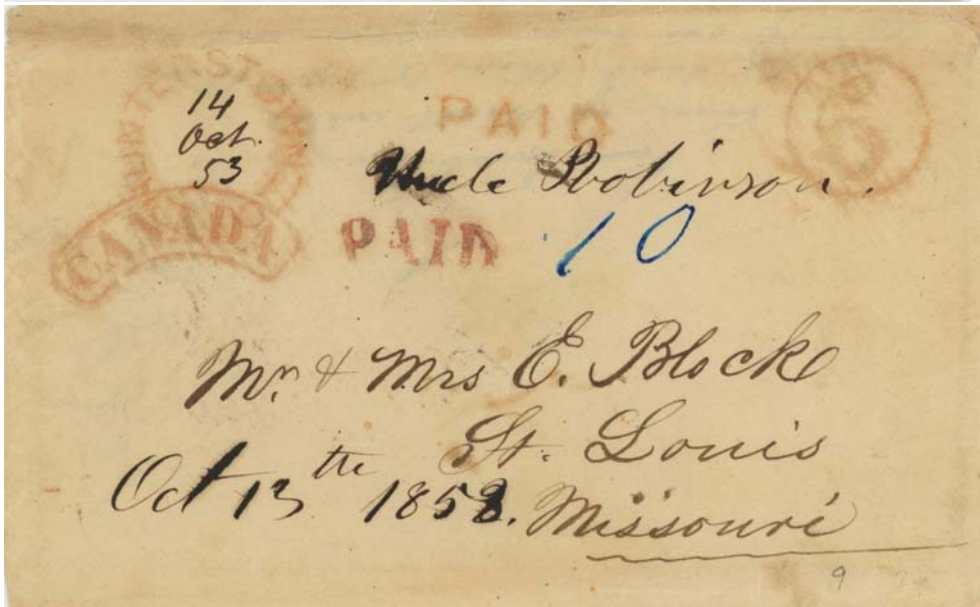 HUNTERSTOWN
14
Oct.
53
PAID
Uncle Robinson.
CANADA
PAID 10
Mr. & Mrs E. Block
St. Louis
Oct 13th 1853. Missouri
9